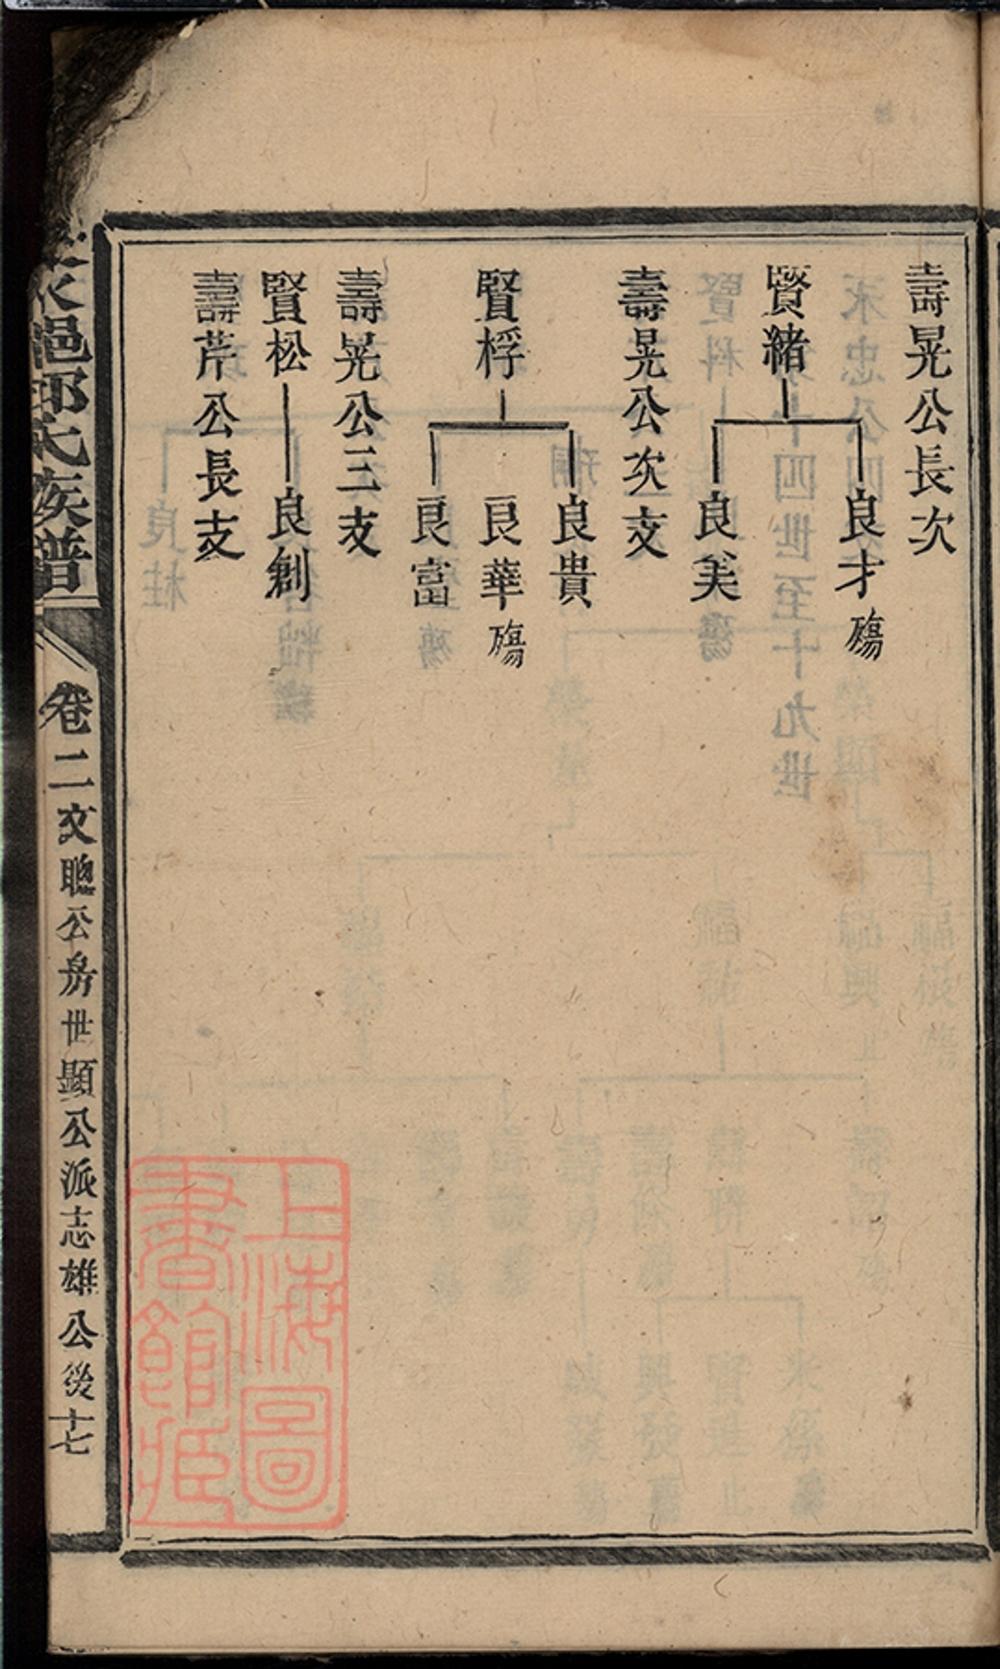 壽晃公長次
賢緒
良才殤
良美
壽晃公次支
賢桴
良貴
良華殤
良富
壽晃公三支
賢松
良創
壽芹公長支
邑邱氏族譜
卷二文聰公房世顯公派志雄公後十七
上海圖
書館藏